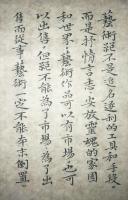 藝術從不是追名逐利的工具和手段
而是抒情言志安放靈魂的家園
和世界藝術作品可以有市場也可
以出售但從不能為了市場為了出
售而從事藝術一定不能本末倒置